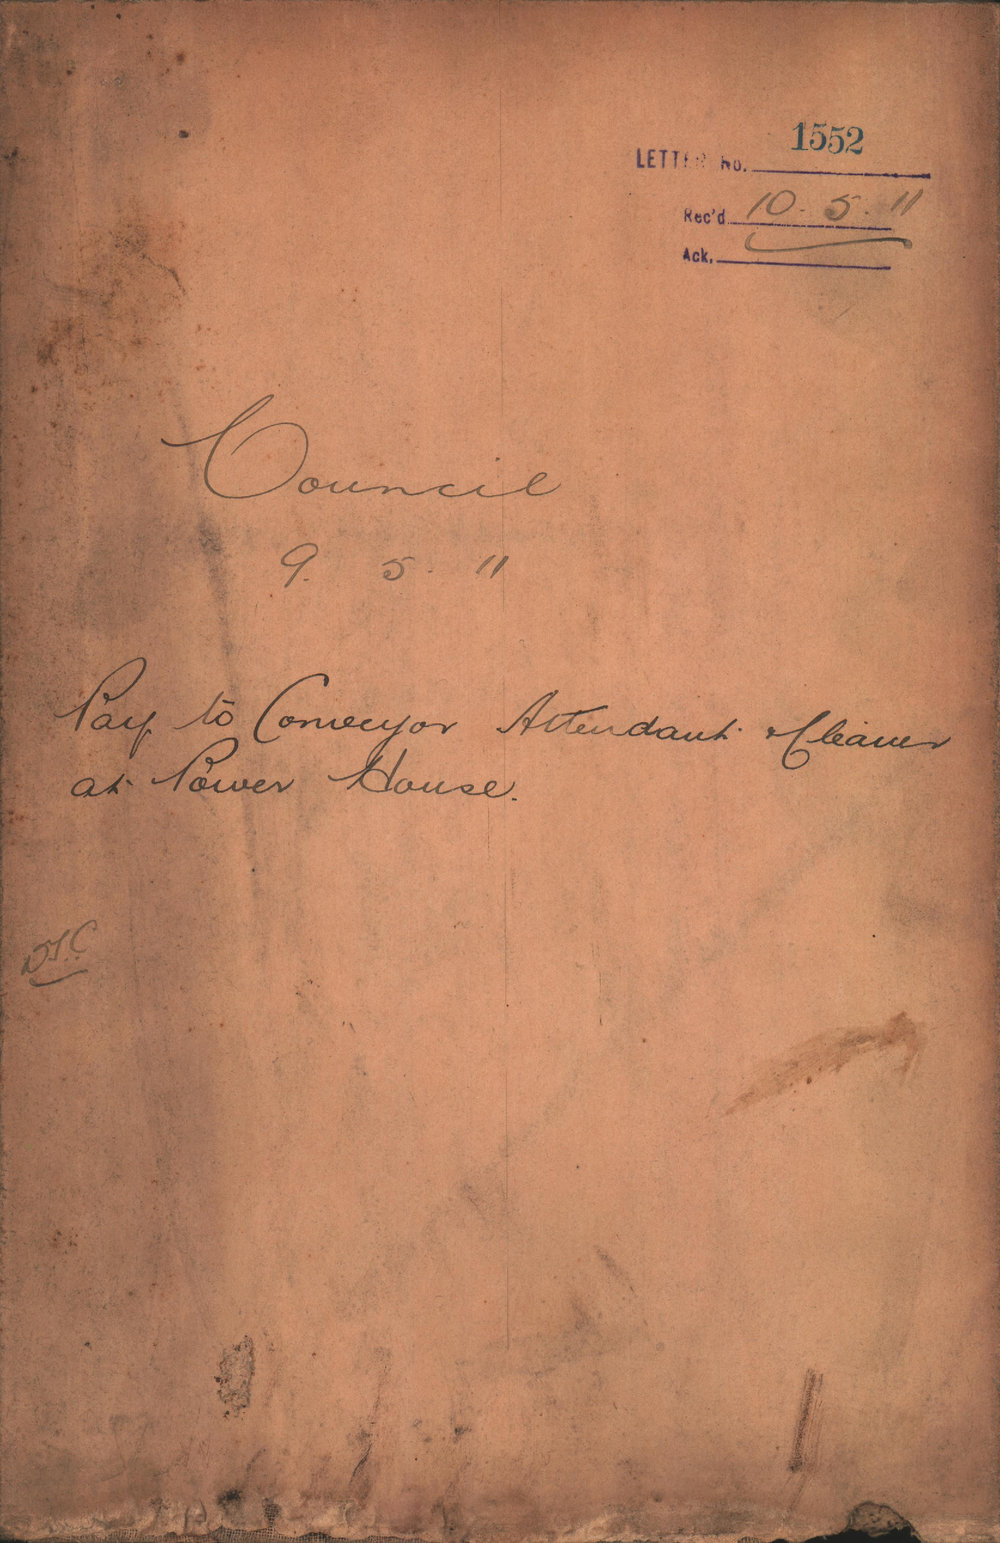 LETTER No. 1552
Rec'd 10. 5. 11
Ack.
Council
9. 5. 11
Pay to Conveyor Attendant & Cleaner
at Power House.